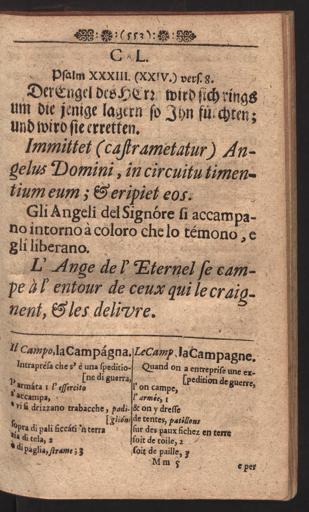 (552)
C L.
Psalm XXXIII. (XXIV.) vers. 8.
Der Engel des HErꝛ wird sich rings
um die jenige lagern so Jhn fürchten;
und wird sie erretten.
Immittet (castrametatur) An-
gelus Domini, in circuitu timen-
tium eum; & eripiet eos.
Gli Angeli del Signóre si accampa-
no intorno à coloro che lo témono, e
gli liberano.
L' Ange de l' Eternel se cam-
pe à l' entour de ceux qui le craig-
nent, & les delivre.
Il Campo, la Campágna.
Intraprésa che s' è una speditio-
[ne di guerra,
l' armáta 1 l' essercito
s' accampa,
vi si drizzano trabacche, padi-
[glióni
sopra di pali ficcáti 'n terra
di tela, 2
ò di paglia, strame; 3
Le Camp, la Campagne.
Quand on a entreprise une ex-
[pedition de guerre,
l' on campe,
l' armée, 1
& on y dresse
de tentes, pavillons
sur des paux fichez en terre
soit de toile, 2
soit de paille, 3
M m 5
e per